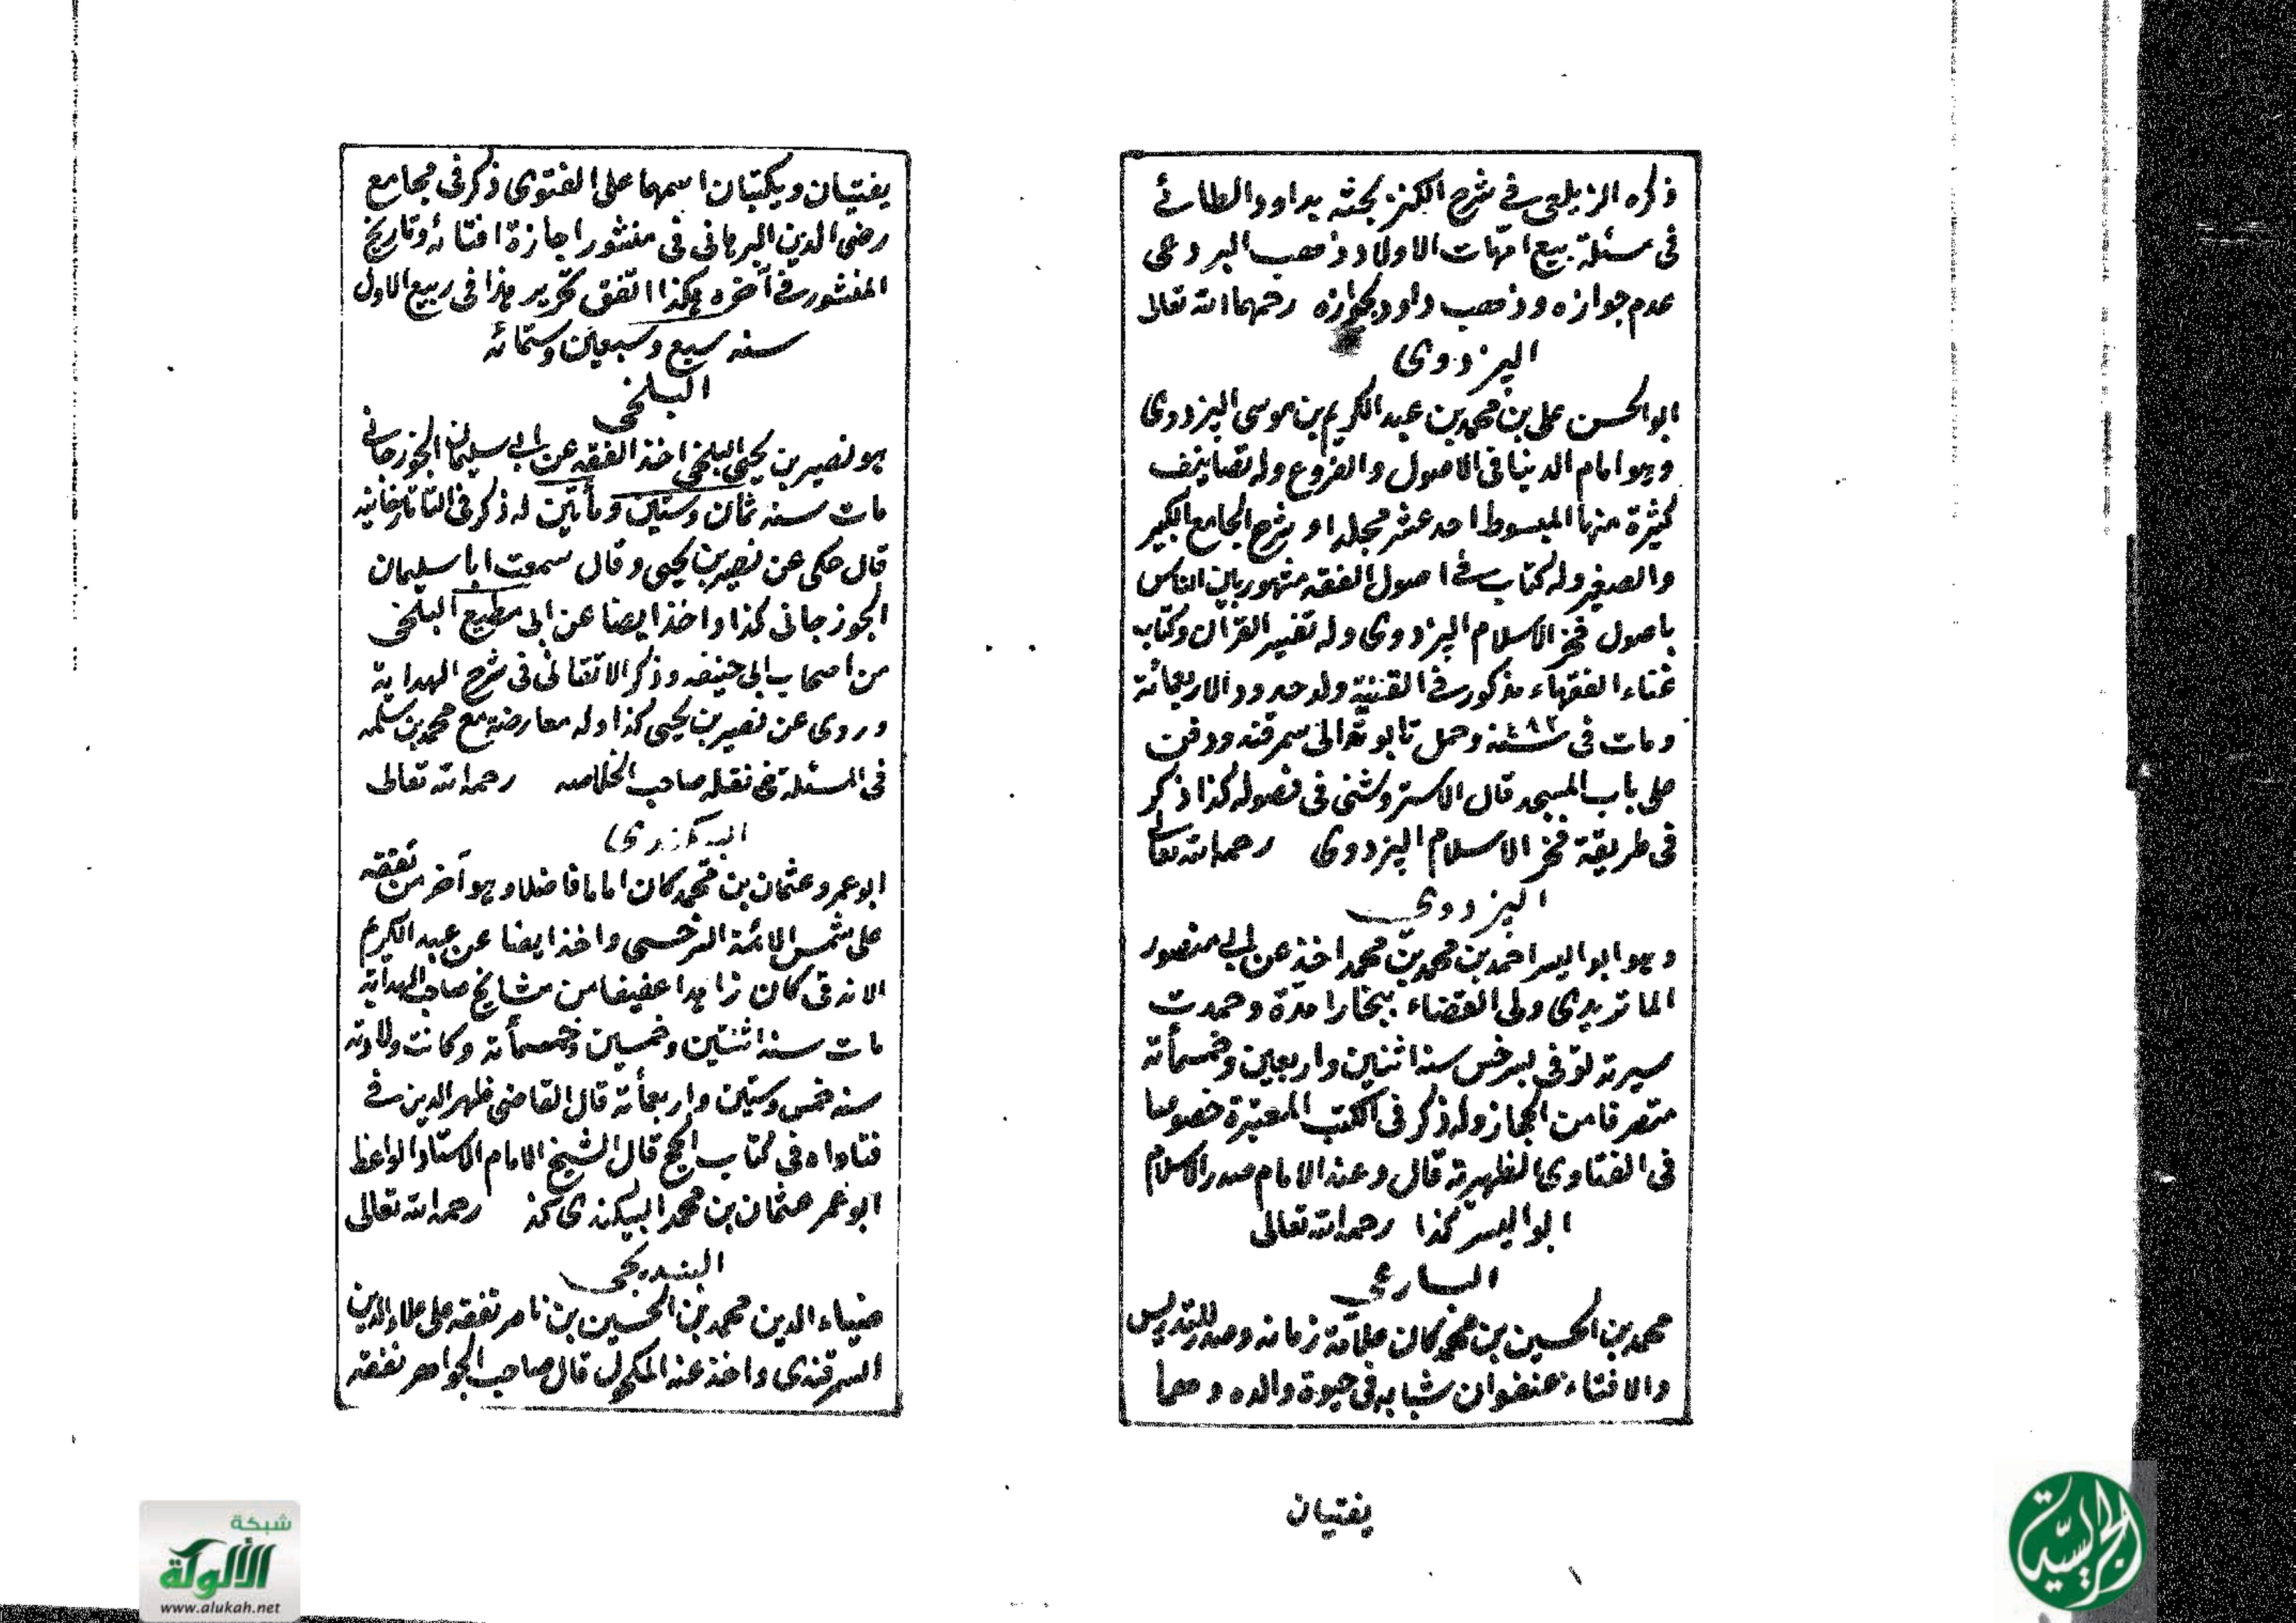 ذكره الزيلعى في شرح الكنز بحثه بداود الطائے
فى مسئلة بيع امّهات الاولاد وذهب البردعى
عدم جوازه وذهب داود بجوازه رحمهما الله تعالى
البزدوى
ابو الحسن على بن محمد بن عبد الكريم بن موسى البزدوى
وهو امام الدنيا فى الاصول والفروع وله تصانيف
كثيرة منها المبسوط احد عشر مجلدا و شرح الجامع الكبير
والصغير وله كتاب في اصول الفقه مشهور بين الناس
باصول فخر الاسلام البزدوى وله تفسير القرآن وكتاب
غناء الفقهاء مذكور في القنية ولد حدود الاربعمائة
ومات فى سنة ٤٨٢ وحمل تابوته الى سمرقند ودفن
على باب المسجد قال الاستروشنى فى فصوله كذا ذكر
فى طريقة فخر الاسلام البزدوى رحمه الله تعالى
البزدوي
وهو ابو اليسر احمد بن محمد بن محمد اخذ عن ابى منصور
الماتريدى ولى القضاء ببخارا مدّة وحمدت
سيرته توفى بسرخس سنة اثنين واربعين وخمسمأئة
متصرفا من الحجاز وله ذكر فى الكتب المعتبرة خصوصا
فى الفتاوى الظهيرية قال وعند الامام صدر الاسلام
ابو اليسر كذا رحمه الله تعالى
البارعي
محمد بن الحسين بن محمد كان علامة زمانه وصدر للتدريس
والافتاء عنفوان شبابه فى حيوة والده وهما
يفتيان
يفتيان ويكتبان اسمهما على الفتوى ذكر فى مجامع
رضى الدين البرهانى فى منشور اجازة افتائه وتاريخ
المنشور في آخره هكذا اتفق تحرير هذا فى ربيع الاول
سنه سبع وسبعين وستمائه
البلخى
هو نصير بن يحيى البلخى اخذ الفقه عن ابى سليمان الجوزجانے
مات سنه ثمان وستين ومأتين له ذكر فى التاتارخانيه
قال حكى عن نصير بن يحيى وقال سمعت ابا سليمان
الجوزجانى كذا واخذ ايضا عن ابى مطيع البلخى
من اصحاب ابى حنيفه وذكر الاتقانى فى شرح الهداية
وروى عن نصير بن يحيى كذا وله معارضة مع محمد بن سلمه
فى المسئلة نقله صاحب الخلاصه رحمه الله تعالى
البيكندى
ابو عمرو عثمان بن محمد كان اماما فاضلا وهو آخر من تفقه
على شمس الائمة السرخسى واخذ ايضا عن عبد الكريم
الاندقى كان زاهدا عفيفا من مشايخ صاحب الهداية
مات سنة اثنتين وخمسين وخمسمأئة وكانت ولادته
سنه خمس وستين واربعمأئة قال القاضى ظهير الدين في
فتاواه فى كتاب الحج قال الشيخ الامام الاستاد الواعظ
ابو عمر عثمان بن محمد البيكندى كذ رحمه الله تعالى
البنديجى
ضياء الدين محمد بن الحسين بن ناصر تفقه على علاء الدين
السمرقندى واخذ عنه المكحول قال صاحب الجواهر تفقه
شبكة
الألوكة
www.alukah.net